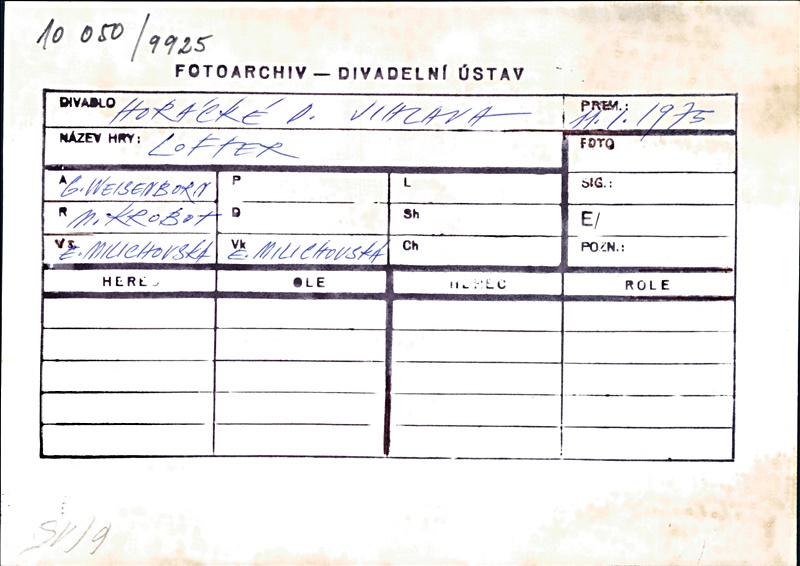 10 050/9925
FOTOARCHIV — DIVADELNÍ ÚSTAV
DIVADLO HORÁCKÉ D. JIHLAVA PREM.: 11.1.1975
NÁZEV HRY: LOFTER FOTO
A G. WEISENBORN P L SIG.:
R M. KROBOT D Sh E/
Vs E. MILICHOVSKÁ Vk E. MILICHOVSKÁ Ch POZN.:
HEREC ROLE HEREC ROLE
SV/9